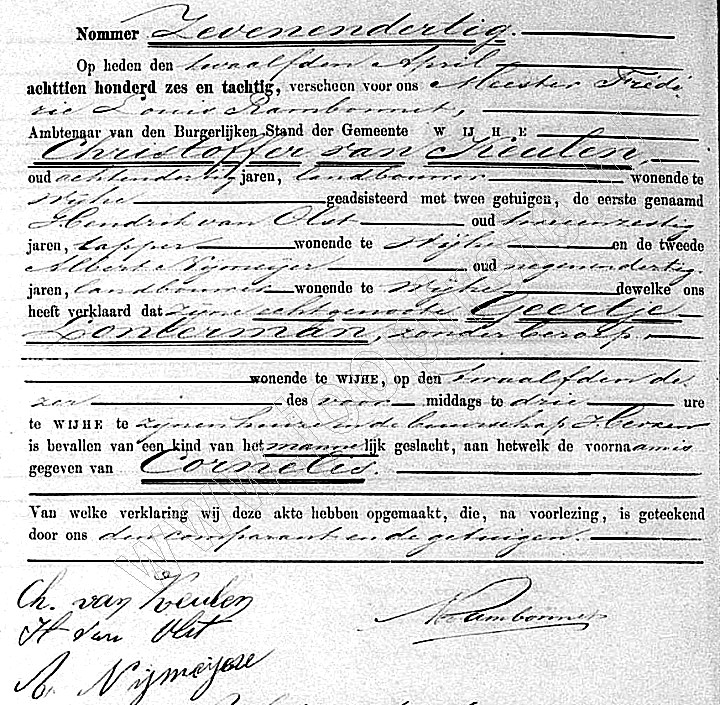 Nommer Zevenendertig.
Op heden den twaalfden April
achttien honderd zes en tachtig, verscheen voor ons Meester Frédé-
ric Louis Rambonnet,
Ambtenaar van den Burgerlijken Stand der Gemeente WIJHE
Christoffer van Keulen,
oud achtendertig jaren, landbouwer wonende te
Wijhe geadsisteerd met twee getuigen, de eerste genaamd
Hendrik van Olst oud tweeenzestig
jaren, tapper wonende te Wijhe en de tweede
Albert Nijmeijer oud negenendertig
jaren, landbouwer wonende te Wijhe dewelke ons
heeft verklaard dat zijne echtgenoote Geertje
Lonterman, zonder beroep,
wonende te WIJHE, op den twaalfden de-
zer des voor middags te drie ure
te WIJHE te zijnen huize in de buurschap Herxen
is bevallen van een kind van het mannelijk geslacht, aan hetwelk de voornaam is
gegeven van Cornelis.
Van welke verklaring wij deze akte hebben opgemaakt, die, na voorlezing, is geteekend
door ons den comparant en de getuigen.
Ch. van Keulen
H van Olst
Rambonnet
A. Nijmeijer